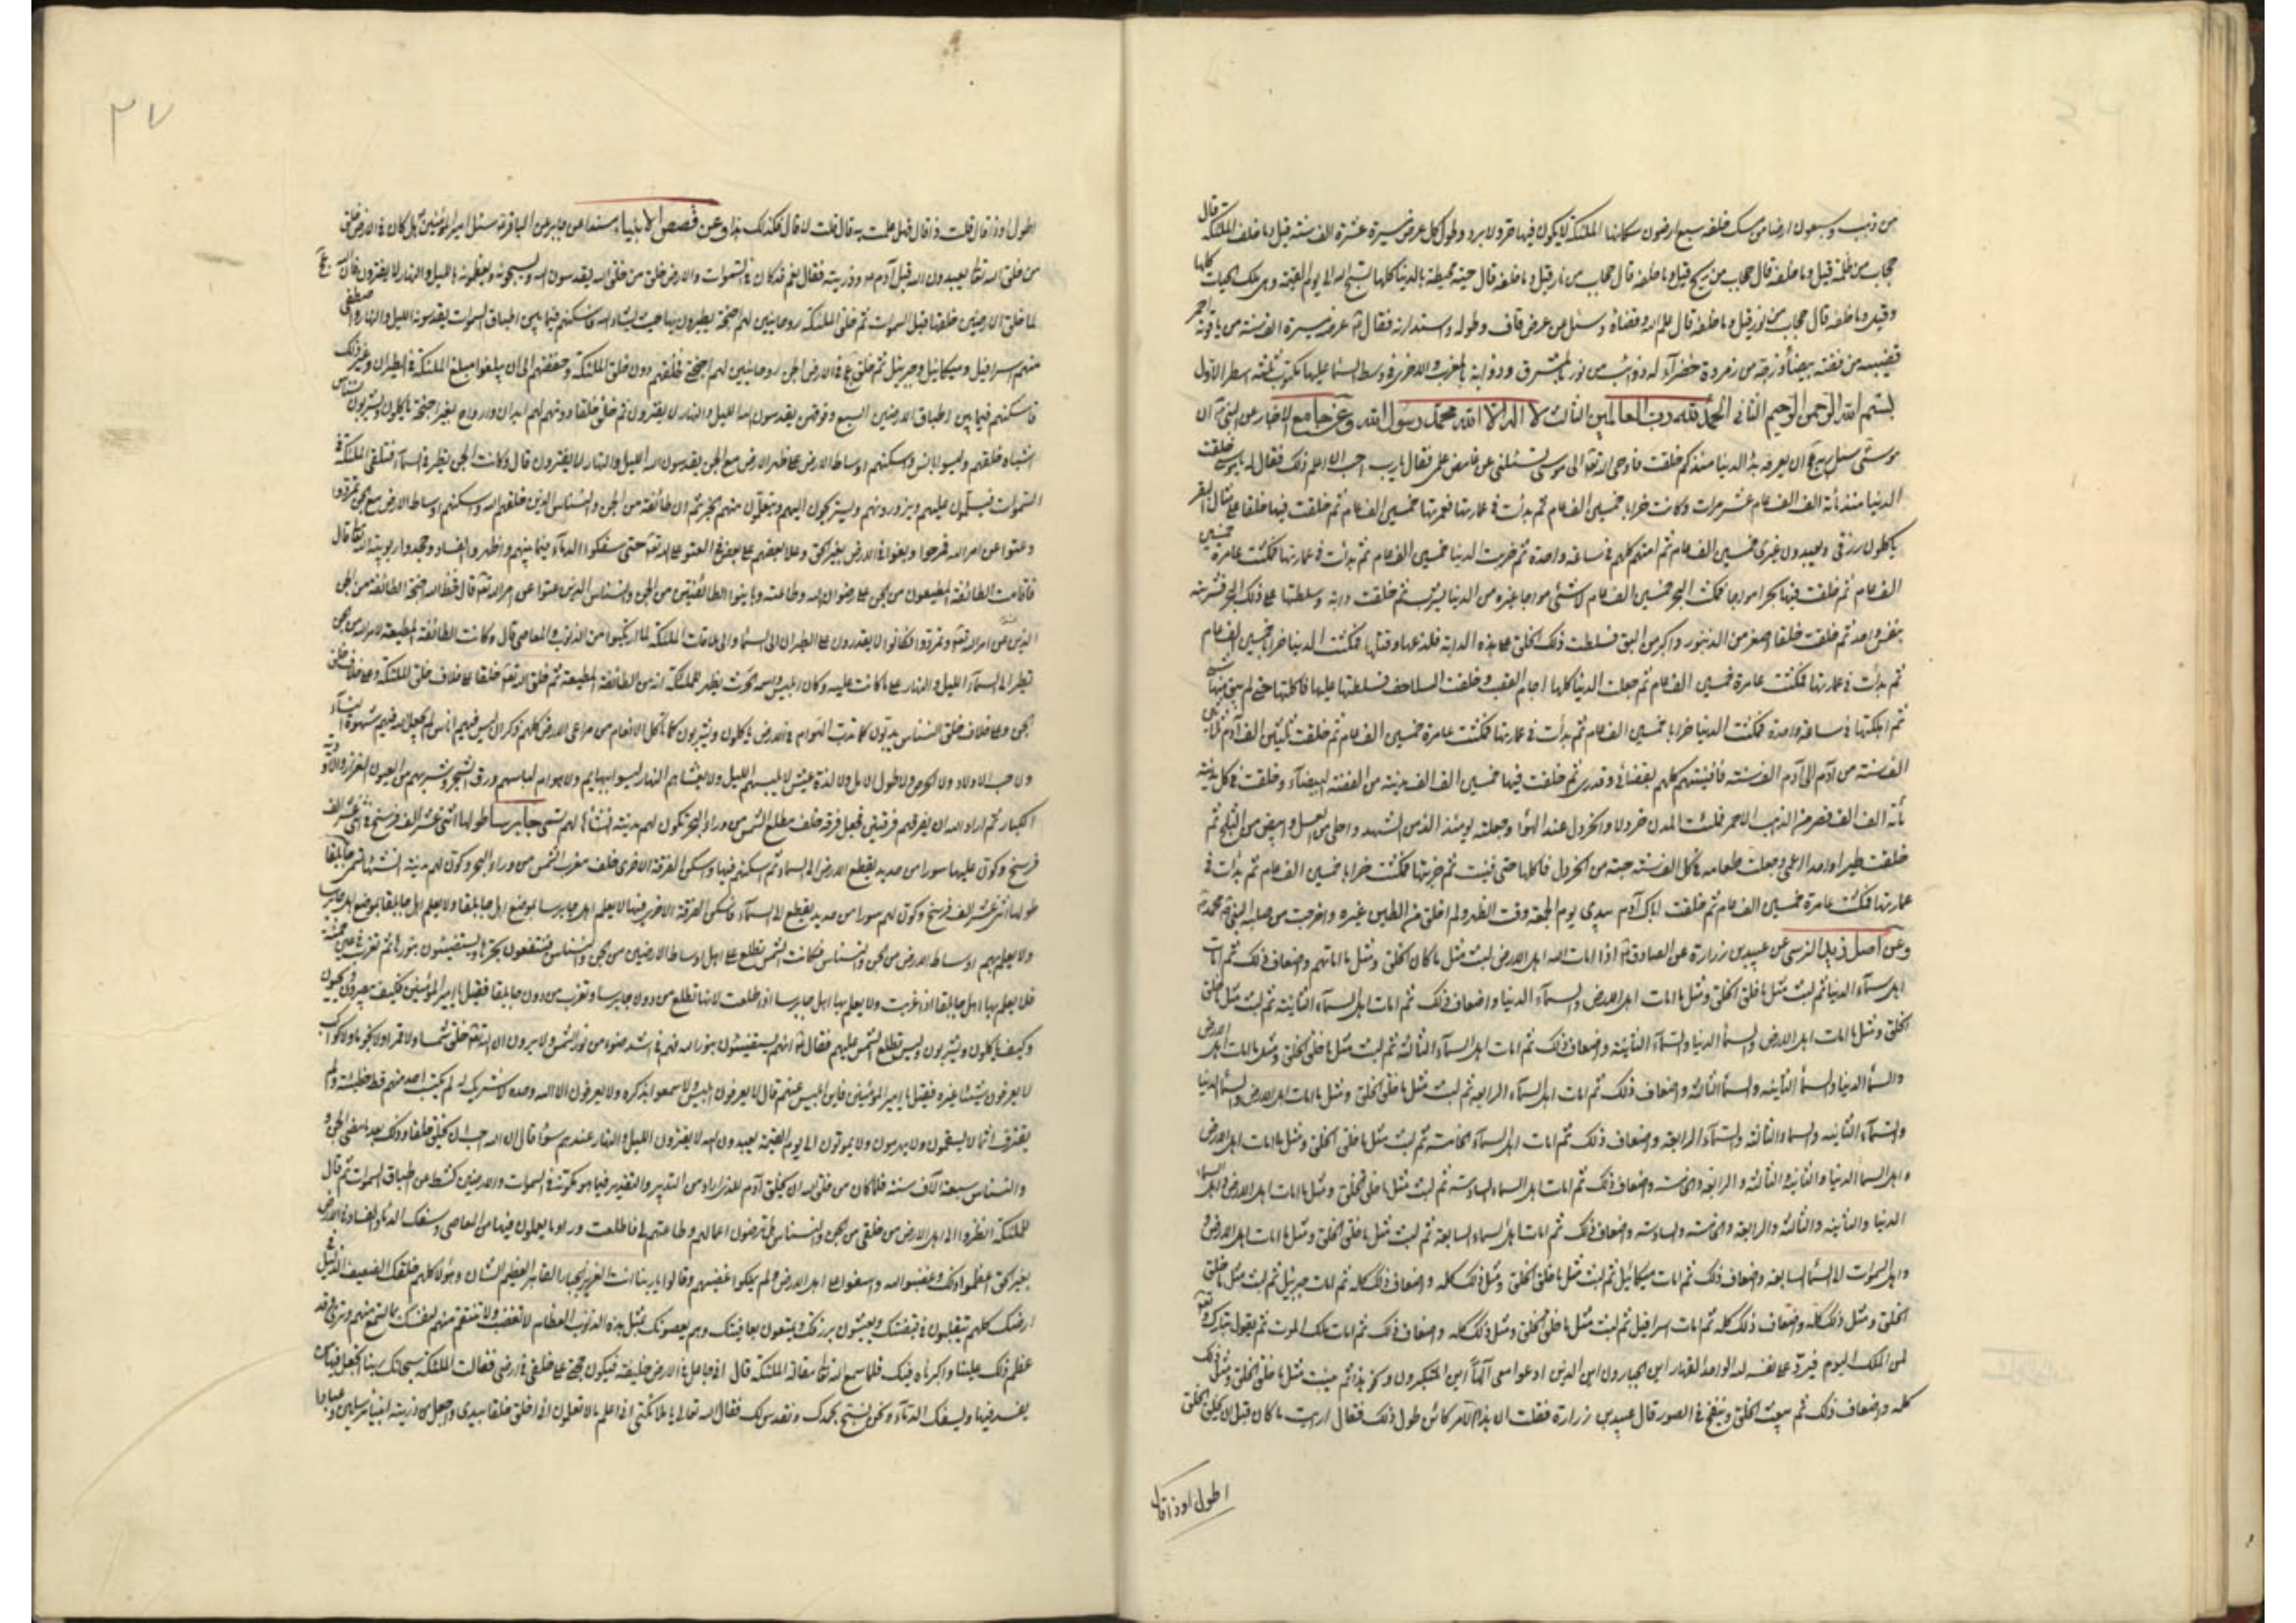 من ذهب وسبعون ارضا من مسك خلفه سبع ارضون سكانها الملئكة لا يكون فيها حر ولا برد وطول كل عرض مسيرة عشرة الف سنة قيل وما خلف الملئكة قال
حجاب من ظلمة قيل وما خلفه قال حجاب من ريح قيل وما خلفه قال حجاب من نار قيل وما خلفه قال حية محيطة بالدنيا كلها تسبح الله الى يوم القيمة وهى ملك الحيات كلها
وقيل وما خلفه قال حجاب من نور قيل وما خلفه قال علم الله وقضاؤه وسئل من عرض قاف وطوله واستدارته فقال عرضه مسيرة الف سنة من ياقوت احمر
قضيبه من فضة بيضاء وزجه من زمردة خضراء له ذوائب من نور بالمشرق وذوابة بالمغرب والاخرى فى وسط السماء عليها مكتوب ثلثة اسطر الاول
بسم الله الرحمن الرحيم الثانى الحمد لله رب العالمين الثالث لا اله الا الله محمد رسول الله وعن جامع الاخبار عن النبى ان
موسى سئل ربه ان يعرفه بدؤ الدنيا منذ كم خلقت فاوحى الله تعالى الى موسى تسئلنى عن غامض علمى فقال يا رب احب ان اعلم ذلك فقال يا موسى خلقت
الدنيا منذ مأة الف الف عام عشر مرات وكانت خرابا خمسين الف عام ثم بدأت فى عمارتها فعمرتها خمسين الف عام ثم خلقت فيها خلقا على مثال البقر
ياكلون رزقى ويعبدون غيرى خمسين الف عام ثم امتهم كلهم فى ساعة واحدة ثم خربت الدنيا خمسين الف عام ثم بدأت فى عمارتها فمكثت عامرة خمسين
الف عام ثم خلقت فيها بحرا فمكث البحر خمسين الف عام لا شئ من الدنيا يشرب ثم خلقت دابة وسلطتها على ذلك البحر فشربته
بنفس واحد ثم خلقت خلقا اصغر من الزنبور واكبر من البق فسلطت ذلك الخلق على هذه الدابة فلدغها وقتلها فمكثت الدنيا خرابا خمسين الف عام
ثم بدأت فى عمارتها فمكثت عامرة خمسين الف عام ثم جعلت الدنيا كلها اجام القصب وخلقت السلاحف فسلطتها عليها فاكلتها حتى لم يبق منها شئ
ثم اهلكتها فى ساعة واحدة فمكثت الدنيا خرابا خمسين الف عام ثم بدأت فى عمارتها فمكثت عامرة خمسين الف عام ثم خلقت ثلثين آدم
الف سنة من آدم الى آدم الف سنة فافنيتهم كلهم بقضائى وقدرى ثم خلقت فيها خمسين الف الف مدينة من الفضة البيضاء وخلقت فى كل مدينة
مأة الف الف قصر من الذهب الاحمر فملئت المدن خردلا والخردل عند الهواء وجعلته يومئذ الذ من الشهد واحلى من العسل وابيض من الثلج ثم
خلقت طيرا واحدا اعمى وجعلت طعامه فى كل الف سنة حبة من الخردل فاكلها حتى فنيت ثم خربتها فمكثت خرابا خمسين الف عام ثم بدأت فى
عمارتها فمكثت عامرة خمسين الف عام ثم خلقت اباك آدم بيدى يوم الجمعة وقت الظهر ولم اخلق من الطين غيره واخرجت من صلبه النبى محمد
وعن اصل زيد النرسى عن عبيد بن زرارة عن الصادق اذا امات الله اهل الارض لبث مثل ما كان الخلق ومثل ما اماتهم واضعاف ذلك ثم امات
اهل سماء الدنيا ثم لبث مثل ما خلق الخلق ومثل ما امات اهل الارض والسماء الدنيا واضعاف ذلك ثم امات اهل السماء الثانية ثم لبث مثل ما خلق
الخلق ومثل ما امات اهل الارض والسماء الدنيا والسماء الثانية واضعاف ذلك ثم امات اهل السماء الثالثة ثم لبث مثل ما خلق الخلق ومثل ما امات اهل الارض
والسماء الدنيا والسماء الثانية والسماء الثالثة واضعاف ذلك ثم امات اهل السماء الرابعة ثم لبث مثل ما خلق الخلق ومثل ما امات اهل الارض والسماء الدنيا
والسماء الثانية والسماء الثالثة والسماء الرابعة واضعاف ذلك ثم امات اهل السماء الخامسة ثم لبث مثل ما خلق الخلق ومثل ما امات اهل الارض
واهل السماء الدنيا والثانية والثالثة والرابعة والخامسة واضعاف ذلك ثم امات اهل السماء السادسة ثم لبث مثل ما خلق الخلق ومثل ما امات اهل الارض واهل السماء
الدنيا والثانية والثالثة والرابعة والخامسة والسادسة واضعاف ذلك ثم امات اهل السماء السابعة ثم لبث مثل ما خلق الخلق ومثل ما امات اهل الارض و
واهل السموات الى السماء السابعة واضعاف ذلك ثم امات ميكائيل ثم لبث مثل ما خلق الخلق ومثل ذلك كله واضعاف ذلك كله ثم امات جبرئيل ثم لبث مثل ما خلق
الخلق ومثل ذلك كله واضعاف ذلك كله ثم امات اسرافيل ثم لبث مثل ما خلق الخلق ومثل ذلك كله واضعاف ذلك ثم امات ملك الموت ثم يقول تبارك وتعالى
لمن الملك اليوم فيرد على نفسه لله الواحد القهار اين الجبارون اين الذين ادعوا معى الها اين المتكبرون ثم لبث مثل ما خلق الخلق ومثل ذلك
كله واضعاف ذلك ثم يبعث الخلق وينفخ فى الصور قال عبيد بن زرارة فقلت ان هذا الامر كائن طول ذلك فقال ارايت ما كان قبل ان يخلق الخلق
اطول او ذا قال
٣٧
اطول او ذا قال قلت ذا قال فهل علمت به قال قلت لا قال فكذلك هذا وعن قصص الانبياء مسندا عن جابر عن الباقر سئل امير المؤمنين هل كان فى الارض خلق
من خلق الله تعالى يعبدون الله قبل آدم وذريته فقال نعم قد كان فى السموات والارض خلق من خلق الله يقدسون الله ويسبحونه ويعظمونه بالليل والنهار لا يفترون فان الله عج
لما خلق الارضين خلقها قبل السموات ثم خلق الملئكة روحانيين لهم اجنحة يطيرون بها حيث يشاء الله فاسكنهم فيما بين اطباق السموات يقدسونه الليل والنهار واصطفى
منهم اسرافيل وميكائيل وجبرئيل ثم خلق عج فى الارض الجن روحانيين لهم اجنحة فخلقهم دون خلق الملئكة وخفضهم ان يبلغوا مبلغ الملئكة فى الطيران وغير ذلك
فاسكنهم فيما بين اطباق الارضين السبع وفوقهن يقدسون الله الليل والنهار لا يفترون ثم خلق خلقا دونهم لهم ابدان وارواح بغير اجنحة ياكلون ويشربون نسناس
اشباه خلقهم وليسوا بانس واسكنهم اوساط الارض على ظهر الارض مع الجن يقدسون الله الليل والنهار لا يفترون قال وكانت الجن تطير فى السماء فتلقى الملئكة فى
السموات فيسلمون عليهم ويزورونهم ويستريحون اليهم ويتعلمون منهم الخبر ثم ان طائفة من الجن والنسناس الذين خلقهم الله واسكنهم اوساط الارض مع الجن تمردوا
وعتوا عن امر الله فمرحوا وبغوا فى الارض بغير الحق وعلا بعضهم على بعض فى العتو على الله تعالى حتى سفكوا الدماء فيما بينهم واظهروا الفساد وجحدوا ربوبية الله تعالى قال
فاقامت الطائفة المطيعون من الجن على رضوان الله وطاعته وباينوا الطائفتين من الجن والنسناس الذين عتوا عن امر الله تعالى قال فحط الله اجنحة الطائفة من الجن
الذين عتوا عن امر الله وتمردوا فكانوا لا يقدرون على الطيران الى السماء والى ملاقات الملئكة لما ارتكبوا من الذنوب والمعاصى قال وكانت الطائفة المطيعة لامر الله من الجن
تطير الى السماء الليل والنهار على ما كانت عليه وكان ابليس واسمه الحارث يظهر للملئكة انه من الطائفة المطيعة ثم خلق الله تعالى خلقا على خلاف خلق الملئكة وعلى خلاف خلق
الجن وعلى خلاف خلق النسناس يدبون كما تدب الهوام فى الارض ياكلون ويشربون كما تاكل الانعام من مراعى الارض كلهم ذكران ليس فيهم اناث لم يجعل الله فيهم شهوة النساء
ولا حب الاولاد ولا الحرص ولا طول الامل ولا لذة عيش لا يلبسهم الليل ولا يغشاهم النهار ليسوا ببهايم ولا هوام لباسهم ورق الشجر وشربهم من العيون الغزار والاودية
الكبار ثم اراد الله ان يفرقهم فرقتين فجعل فرقة خلف مطلع الشمس من وراء البحر فكون لهم مدينة انشأها لهم تسمى جابرسا طولها اثنى عشر الف فرسخ فى اثنى عشر الف
فرسخ وكون عليها سورا من حديد يقطع الارض الى السماء ثم اسكنهم فيها واسكن الفرقة الاخرى خلف مغرب الشمس من وراء البحر وكون لهم مدينة انشأها تسمى جابلقا
طولها اثنى عشر الف فرسخ وكون لهم سورا من حديد يقطع الى السماء فاسكن الفرقة الاخرى فيها لا يعلم اهل جابرسا بموضع اهل جابلقا ولا يعلم اهل جابلقا بموضع اهل جابرسا
ولا يعلم بهم اوساط الارض من الجن والنسناس فكانت الشمس تطلع على اهل اوساط الارضين من الجن والنسناس فينتفعون بحرها ويستضيئون بنورها ثم تغرب فى عين حمئة
فلا يعلم بها اهل جابلقا اذا غربت ولا يعلم بها اهل جابرسا اذا طلعت لانها تطلع من دون جابرسا وتغرب من دون جابلقا فقيل يا امير المؤمنين فكيف يبصرون ويحيون
وكيف ياكلون ويشربون وليس تطلع الشمس عليهم فقال انهم يستضيئون بنور الله فهم فى اشد ضوء من نور الشمس ولا يرون ان الله تعالى خلق شمسا ولا قمرا ولا نجوما ولا كواكب
لا يعرفون شيئا غيره فقيل يا امير المؤمنين فاين ابليس عنهم قال لا يعرفون ابليس ولا سمعوا بذكره ولا يعرفون الا الله وحده لا شريك له لم يكتسب احد منهم قط خطيئة ولم
يقترف اثما لا يسقمون ولا يهرمون ولا يموتون الى يوم القيمة يعبدون الله لا يفترون الليل والنهار عندهم سواء قال ان الله احب ان يخلق خلقا وذلك بعد ما مضى للجن و
والنسناس سبعة آلاف سنة فلما كان من خلق الله ان يخلق آدم للذى اراد من التدبير والتقدير فيما هو مكونه فى السموات والارضين كشط عن اطباق السموات ثم قال
للملئكة انظروا الى اهل الارض من خلقى من الجن والنسناس هل ترضون اعمالهم وطاعتهم لى فاطلعت وراوا ما يعملون فيها من المعاصى وسفك الدماء والفساد فى الارض
بغير الحق اعظموا ذلك وغضبوا لله واسفوا على اهل الارض ولم يملكوا غضبهم وقالوا يا ربنا انت العزيز الجبار القاهر العظيم الشان وهؤلاء كلهم خلقك الضعيف الذليل
ارضك كلهم يتقلبون فى قبضتك ويعيشون برزقك ويتمتعون بعافيتك وهم يعصونك بمثل هذه الذنوب العظام لا تغضب ولا تنتقم منهم لنفسك بما تسمع منهم وترى وقد
عظم ذلك علينا واكبرناه فيك فلما سمع الله تعالى مقالة الملئكة قال انى جاعل فى الارض خليفة فيكون حجتى على خلقى فى ارضى فقالت الملئكة سبحانك ربنا اتجعل فيها من
يفسد فيها ويسفك الدماء ونحن نسبح بحمدك ونقدس لك فقال الله تعالى يا ملائكتى انى اعلم ما لا تعلمون انى اخلق خلقا بيدى واجعل من ذريته انبياء مرسلين وعبادا